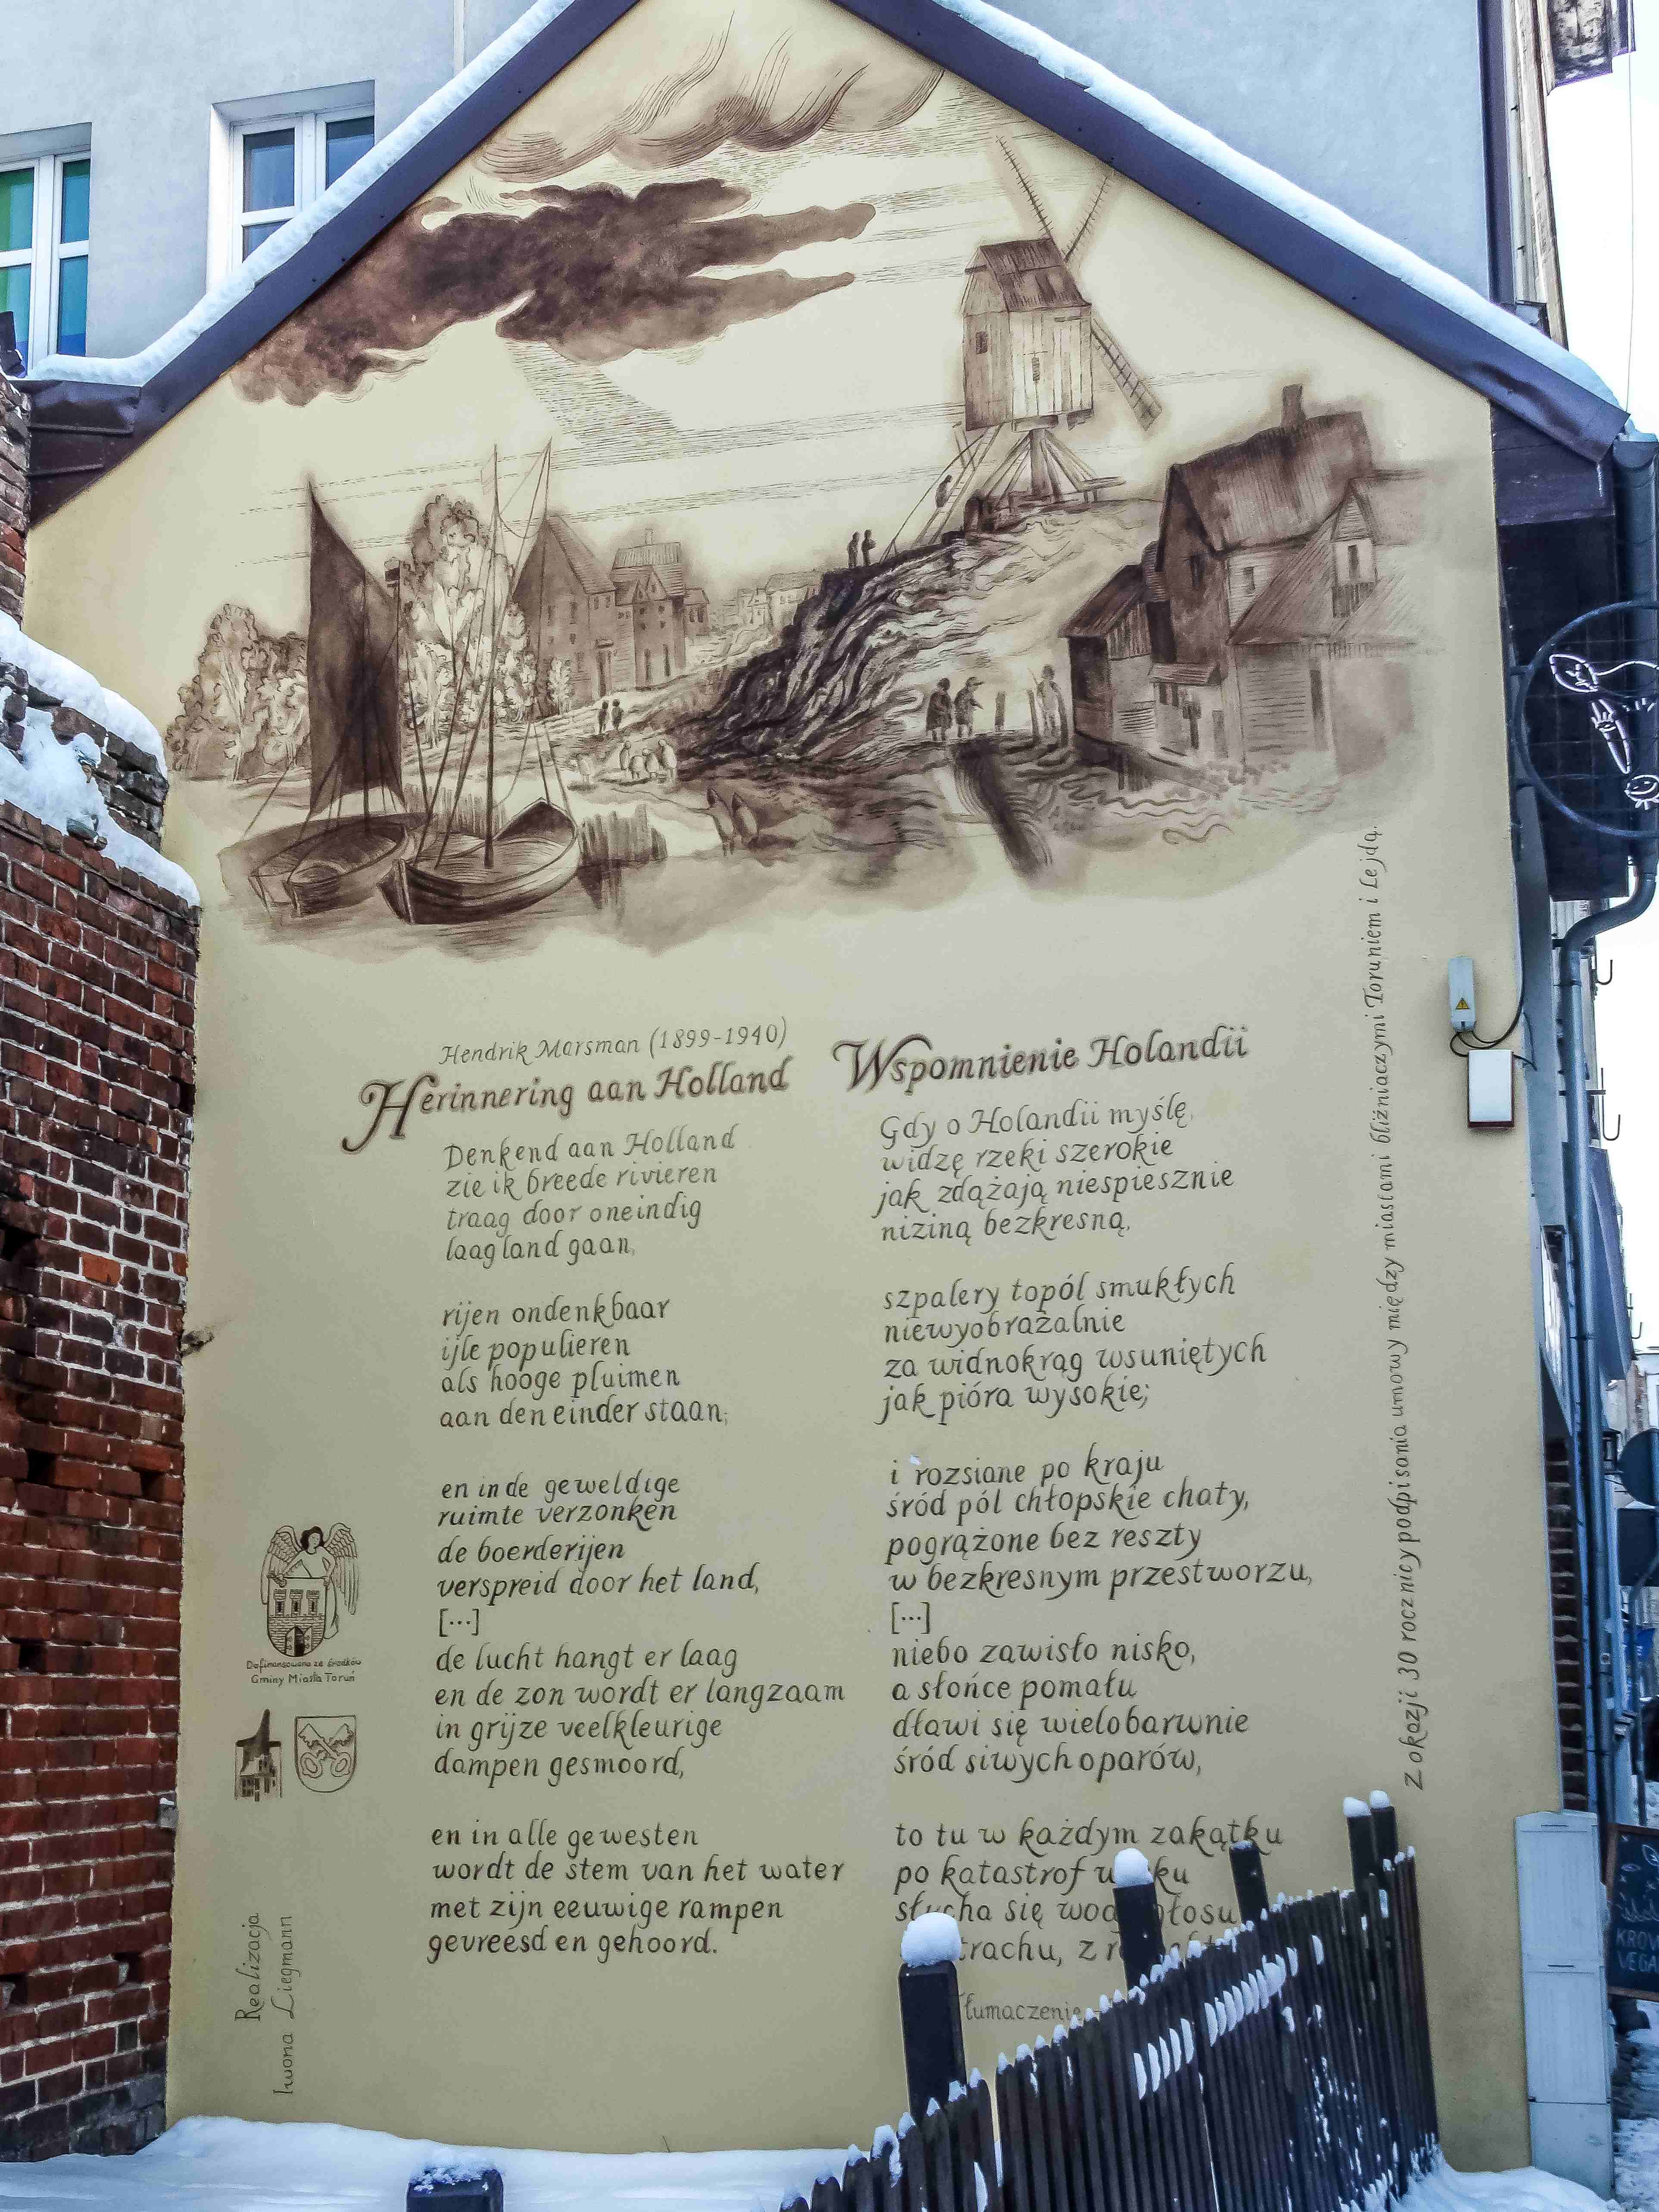 Hendrik Marsman (1899-1940)
Herinnering aan Holland
Denkend aan Holland
zie ik breede rivieren
traag door oneindig
laagland gaan,
rijen ondenkbaar
ijle populieren
als hooge pluimen
aan den einder staan;
en in de geweldige
ruimte verzonken
de boerderijen
verspreid door het land,
[...]
de lucht hangt er laag
en de zon wordt er langzaam
in grijze veelkleurige
dampen gesmoord,
en in alle gewesten
wordt de stem van het water
met zijn eeuwige rampen
gevreesd en gehoord.
Wspomnienie Holandii
Gdy o Holandii myślę,
widzę rzeki szerokie
jak zdążają niespiesznie
niziną bezkresną,
szpalery topól smukłych
niewyobrażalnie
za widnokrąg wsuniętych
jak pióra wysokie;
i rozsiane po kraju
śród pól chłopskie chaty,
pogrążone bez reszty
w bezkresnym przestworzu,
[...]
niebo zawisło nisko,
a słońce pomału
dławi się wielobarwnie
śród siwych oparów,
to tu w każdym zakątku
po katastrof
słucha się
z
Tłumaczenie
Z okazji 30 rocznicy podpisania umowy między miastami bliźniaczymi Toruniem i Lejdą.
Dofinansowano ze środków
Gminy Miasta Toruń
Realizacja
Iwona Liegmann
KROW
VEGA